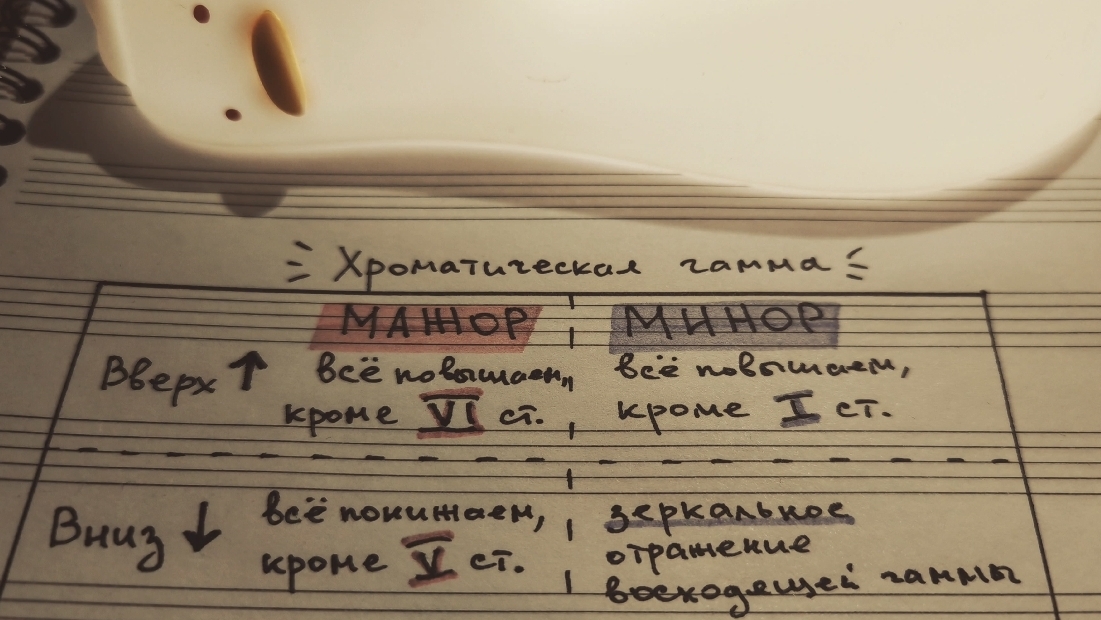 Хроматическая гамма
МАЖОР
МИНОР
Вверх ↑
всё повышаем,
кроме VI ст.
всё повышаем,
кроме I ст.
Вниз ↓
всё понижаем,
кроме V ст.
зеркальное
отражение
восходящей гаммы